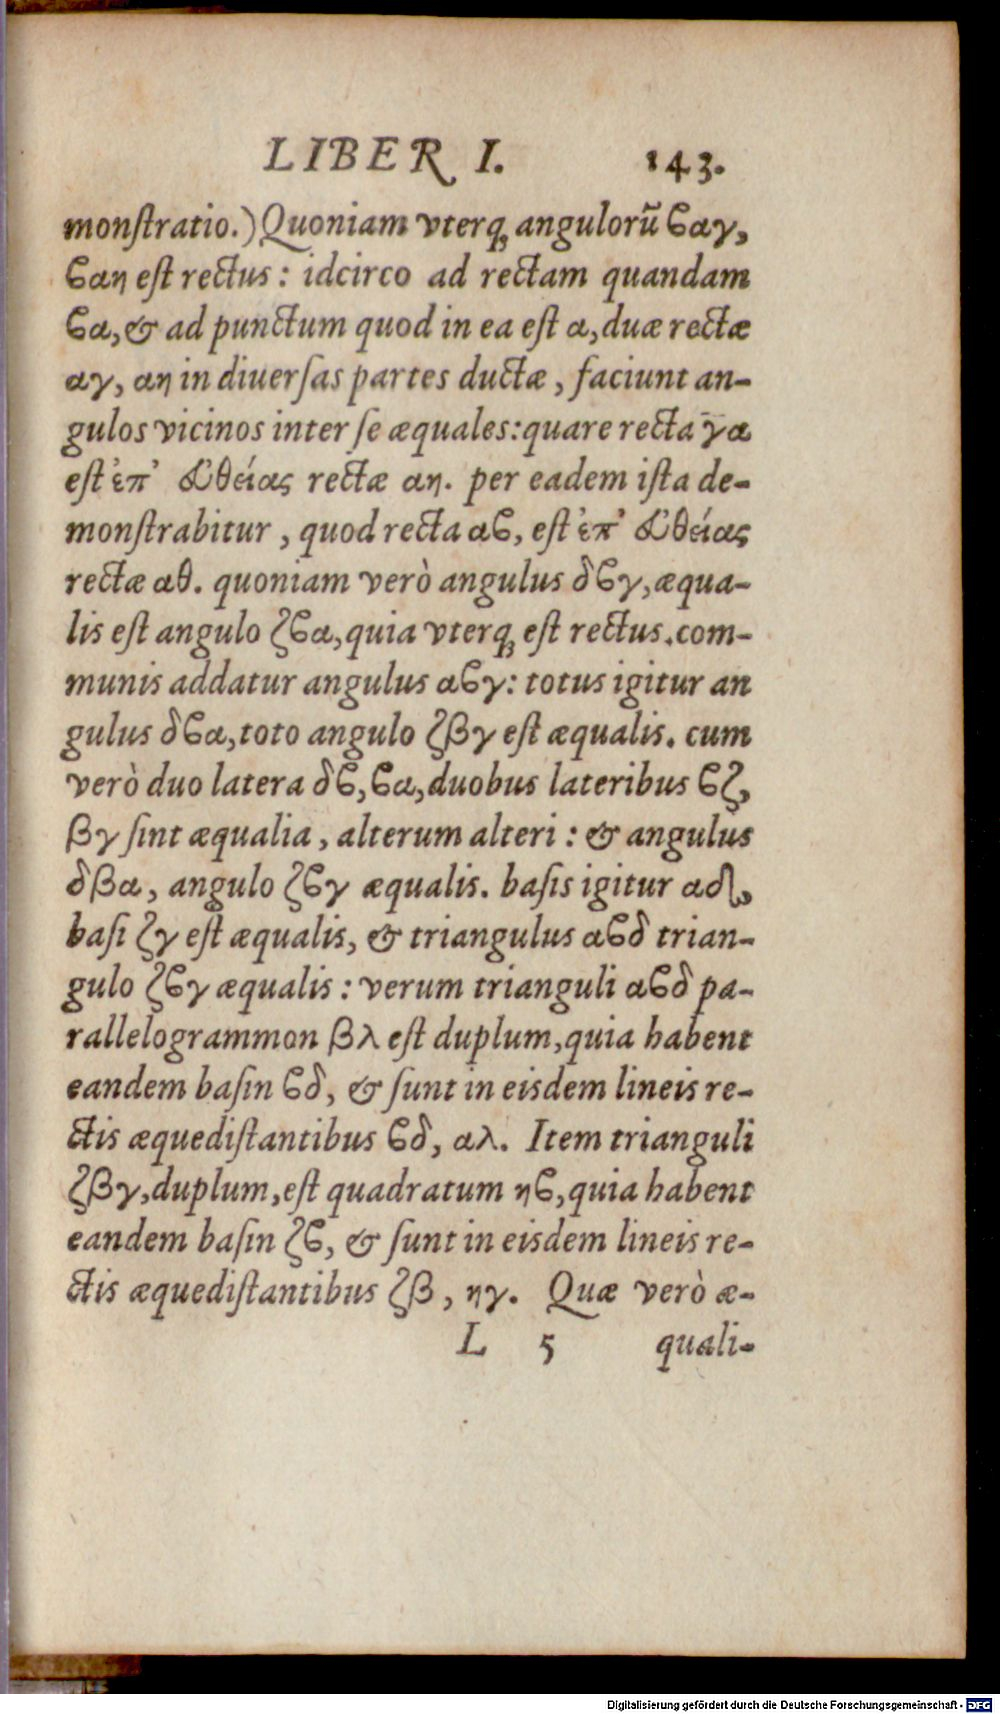 LIBER I. 143.
monſtratio.) Quoniam vterq; angulorũ ϐαγ,
ϐαη eſt rectus: idcirco ad rectam quandam
ϐα, & ad punctum quod in ea eſt α, duæ rectæ
αγ, αη in diuerſas partes ductæ, faciunt an-
gulos vicinos inter ſe æquales: quare recta γα
eſt ἐπ' εὐθείας rectæ αη. per eadem iſta de-
monſtrabitur, quod recta αϐ, eſt ἐπ' εὐθείας
rectæ αθ. quoniam verò angulus δϐγ, æqua-
lis eſt angulo ζϐα, quia vterq; eſt rectus. com-
munis addatur angulus αϐγ: totus igitur an
gulus δϐα, toto angulo ζβγ eſt æqualis. cum
verò duo latera δϐ, ϐα, duobus lateribus ϐζ,
βγ ſint æqualia, alterum alteri: & angulus
δβα, angulo ζϐγ æqualis. baſis igitur αδ,
baſi ζγ eſt æqualis, & triangulus αϐδ trian-
gulo ζϐγ æqualis: verum trianguli αϐδ pa-
rallelogrammon βλ eſt duplum, quia habent
eandem baſin ϐδ, & ſunt in eisdem lineis re-
ctis æquediſtantibus ϐδ, αλ. Item trianguli
ζβγ, duplum, eſt quadratum ηϐ, quia habent
eandem baſin ζϐ, & ſunt in eisdem lineis re-
ctis æquediſtantibus ζβ, ηγ. Quæ verò æ-
L 5 quali-
Digitalisierung gefördert durch die Deutsche Forschungsgemeinschaft - DFG